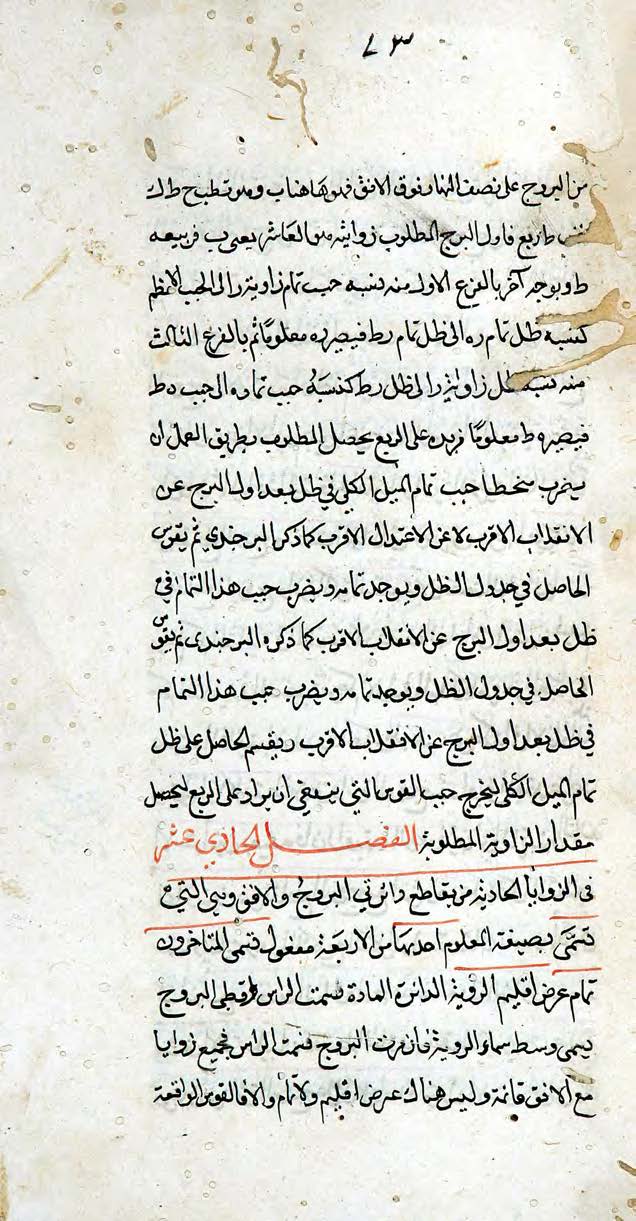 ٧٣
من البروج على نصف النهار فوق الافق
ط ربع فاول البرج المطلوب زوايته يعنى ب فربيعه
ط وبوجه آخر بالفرع الاول منه نسبه جيب تمام زاوية ر الى الجيب الاعظم
كنسبة ظل تمام ره الى ظل تمام رط فيصير ره معلوما ثم بالفرع الثالث
منه نسبة ظل زاوية ر الى ظل رط كنسبة جيب تمام ره الى جيب ه ط
فيصير ه ط معلومًا فزيده على الربع يحصل المطلوب وطريق العمل ان
يضرب منحطا جيب تمام الميل الكلى في ظل بعد اول البرج عن
الانقلاب الاقرب لا عن الاعتدال الاقرب كما ذكر البرجندي ثم يقوس
الحاصل في جدول الظل ويوجد تمامه ويضرب جيب هذا التمام في
ظل بعد اول البرج عن الانقلاب الاقرب كما ذكره البرجندى ثم يقوس
الحاصل في جدول الظل ويوجد تمامه ويضرب جيب هذا التمام
في ظل بعد اول البرج عن الانقلاب الاقرب ويقسم الحاصل على ظل
تمام الميل الكلى ليخرج جيب القوس التي ينبغي ان يزاد على الربع ليحصل
مقدار الزاوية المطلوبة الفصل الحادي عشر
في الزوايا الحادثة من تقاطع دائرتي البروج والافق وهي التي
تسمى بصيغة المعلوم احديها من الاربعة مفعول تسمى المتاخرون
تمام عرض اقليم الرؤية الدائرة المارة بسمت الراس وقطبى البروج
يسمى وسط سماء الروية فان مرت البروج بسمت الراس فجميع زوايا
مع الافق قائمة وليس هناك عرض اقليم ولا تمام والا فالقوس الواقعة